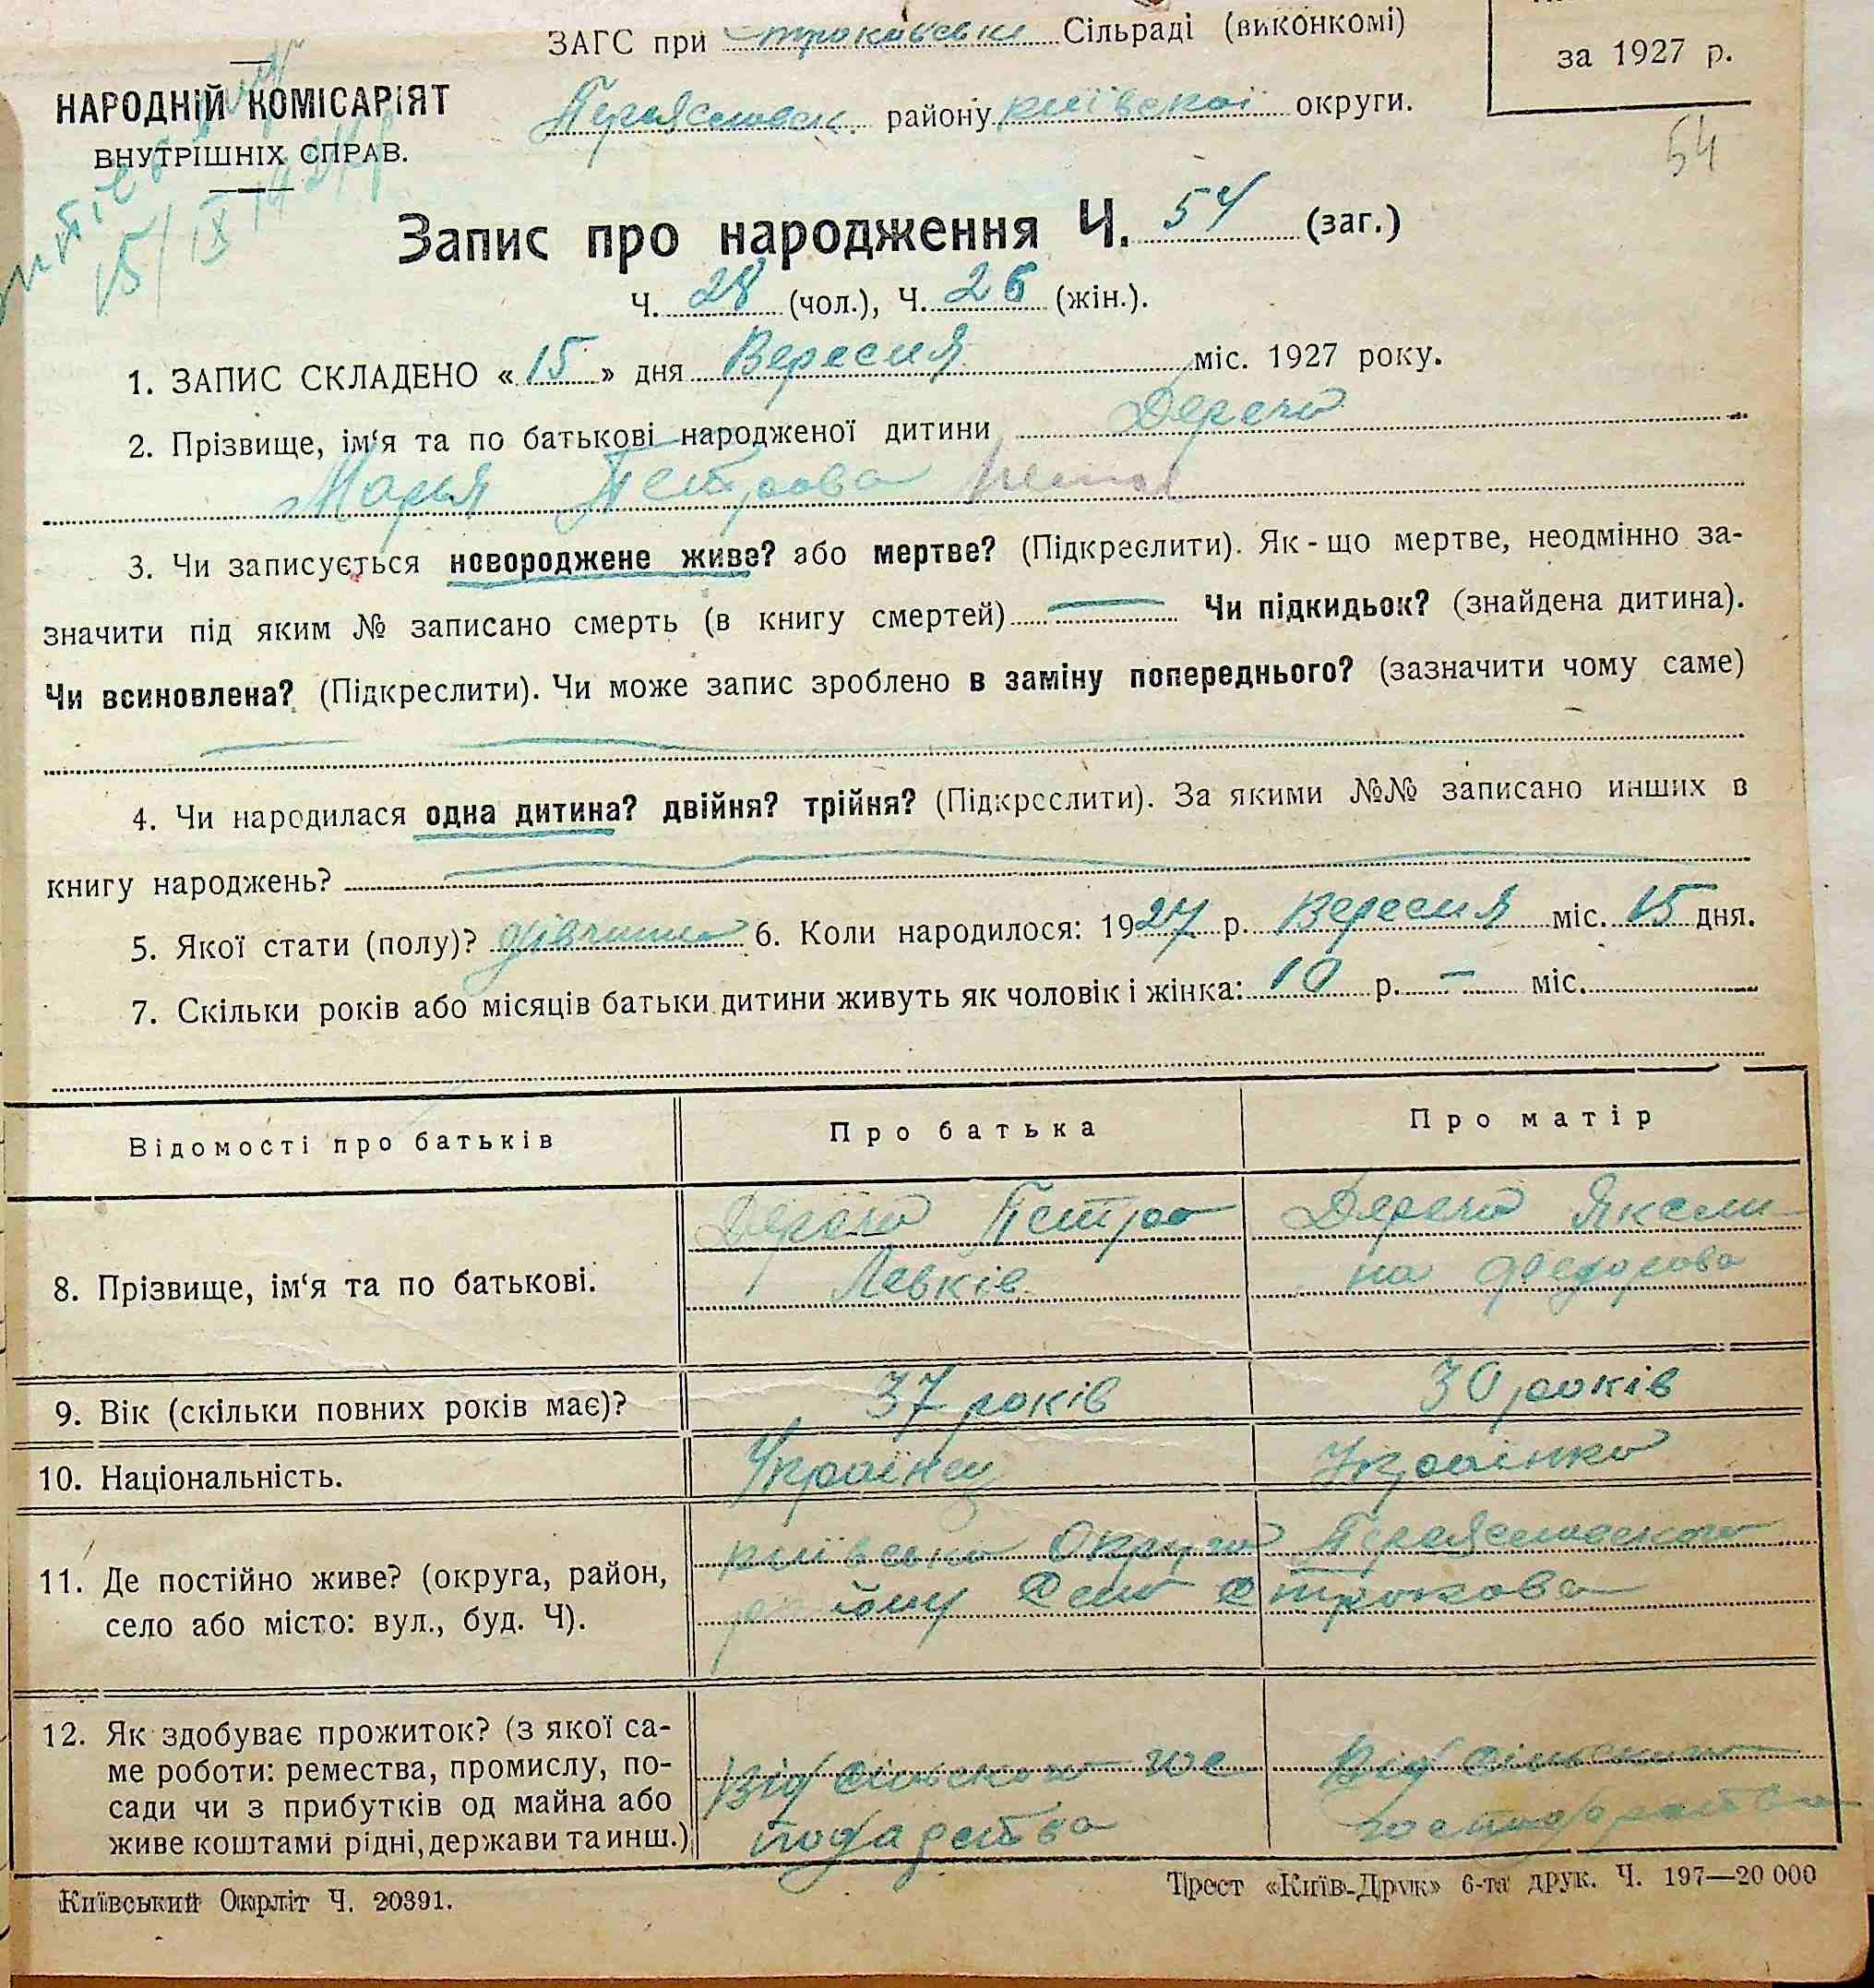 ЗАГС при Строківські Сільраді (виконкомі)
за 1927 р.
НАРОДНІЙ КОМІСАРІЯТ
ВНУТРІШНІХ СПРАВ.
Переяславск. району київської округи.
54
15/IX
Запис про народження Ч. 54 (заг.)
Ч. 28 (чол.), Ч. 26 (жін.).
1. ЗАПИС СКЛАДЕНО « 15 » дня Вересня міс. 1927 року.
2. Прізвище, ім‘я та по батькові народженої дитини Дереча
Марья Петрова
3. Чи записується новороджене живе? або мертве? (Підкреслити). Як-що мертве, неодмінно за-
значити під яким № записано смерть (в книгу смертей) — Чи підкидьок? (знайдена дитина).
Чи всиновлена? (Підкреслити). Чи може запис зроблено в заміну попереднього? (зазначити чому саме)
4. Чи народилася одна дитина? двійня? трійня? (Підкреслити). За якими №№ записано инших в
книгу народжень?
5. Якої стати (полу)? дівчина 6. Коли народилося: 1927 р. Вересня міс. 15 дня.
7. Скільки років або місяців батьки дитини живуть як чоловік і жінка: 10 р. — міс.
Відомості про батьків Про батька Про матір
8. Прізвище, ім‘я та по батькові.
Дереча Петро
Левків
Дереча Яксли-
на Федорова
9. Вік (скільки повних років має)? 37 років 30 років
10. Національність. Українец Українка
11. Де постійно живе? (округа, район,
село або місто: вул., буд. Ч).
київська Округа Переяславського
району Село Строкова
12. Як здобуває прожиток? (з якої са-
ме роботи: ремества, промислу, по-
сади чи з прибутків од майна або
живе коштами рідні, держави та инш.)
Від сільского гос
подарства
Від сільского
господарства
Київський Окрліт Ч. 20391.
Трест «Київ-Друк» 6-та друк. Ч. 197—20 000